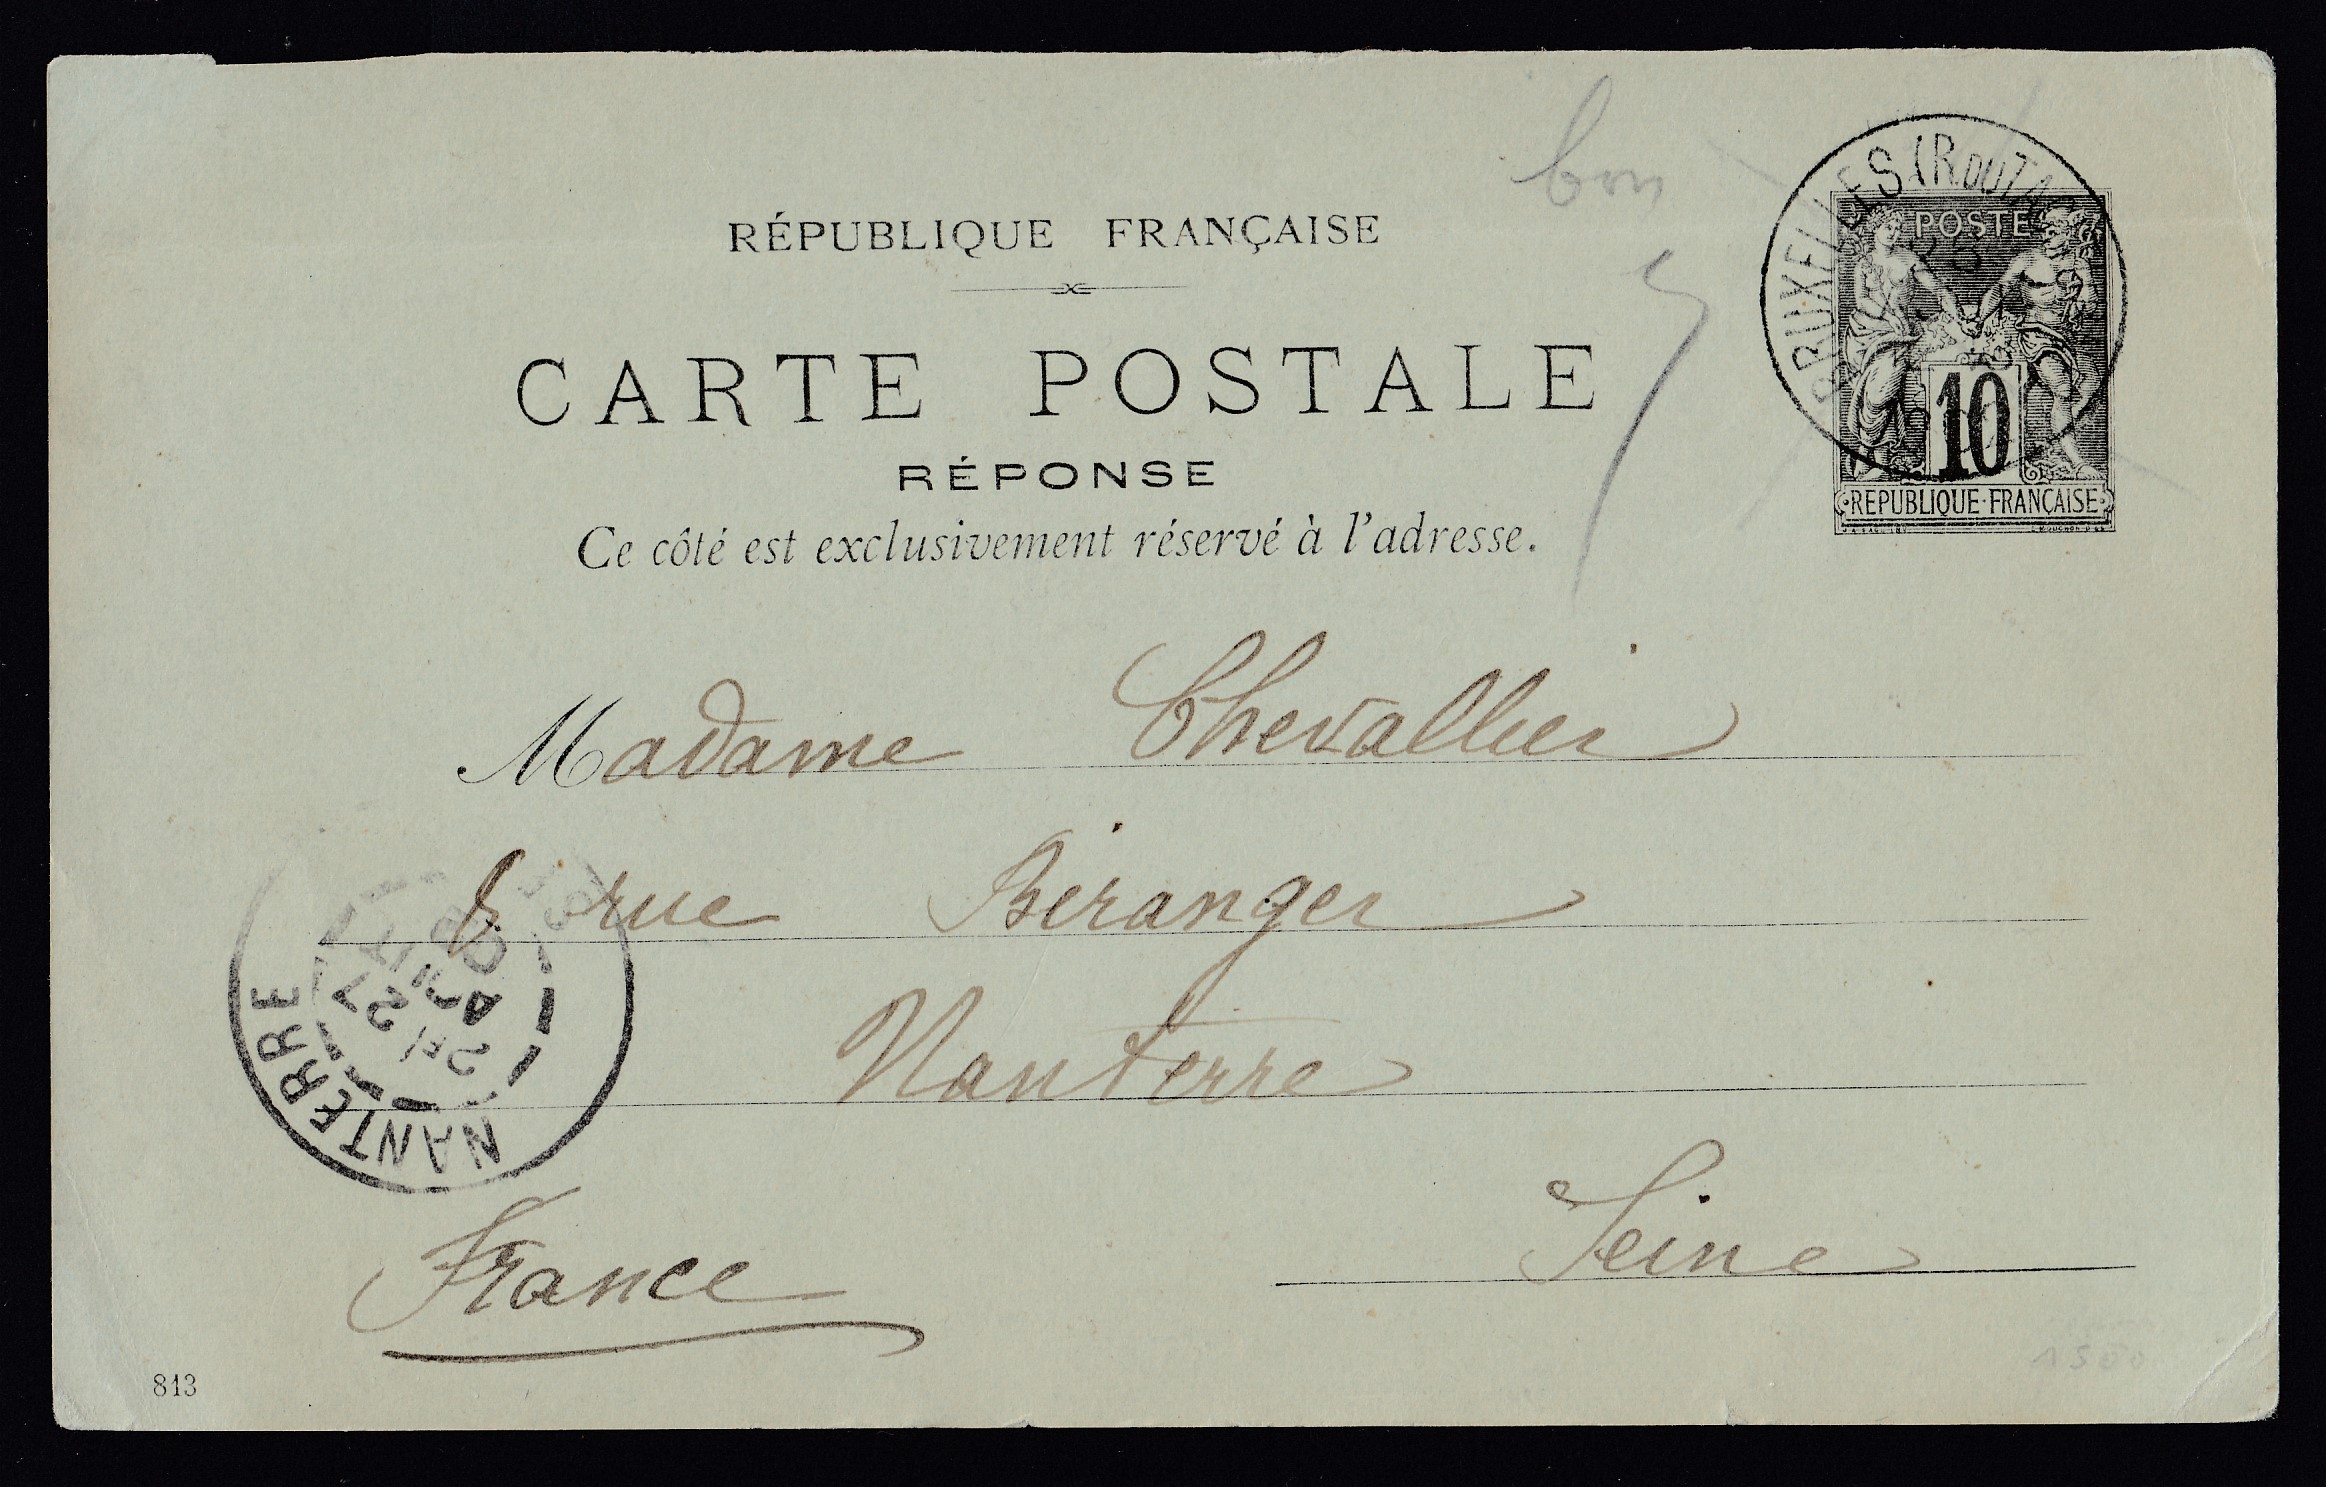 bon
BRUXELLES (R.DUTA
RÉPUBLIQUE FRANÇAISE
POSTE
10
REPUBLIQUE FRANÇAISE
CARTE POSTALE
RÉPONSE
Ce côté est exclusivement réservé à l'adresse.
Madame Chevallier
8 rue Béranger
Nanterre
Seine
France
NANTERRE
813
1500